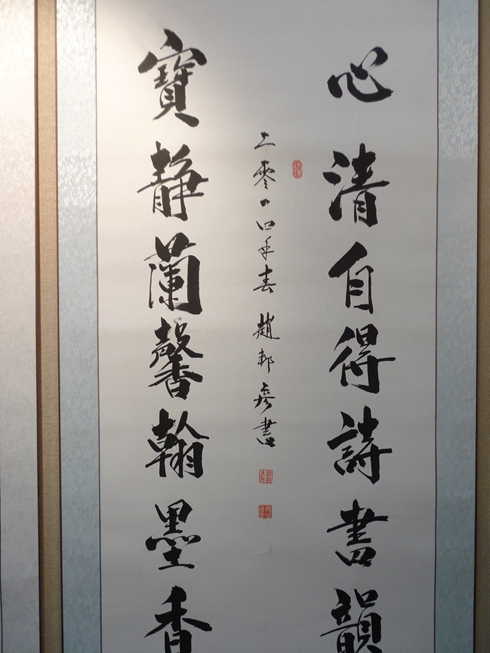 心清自得詩書韻
寶靜蘭馨翰墨香
二零年春 趙邦彥書